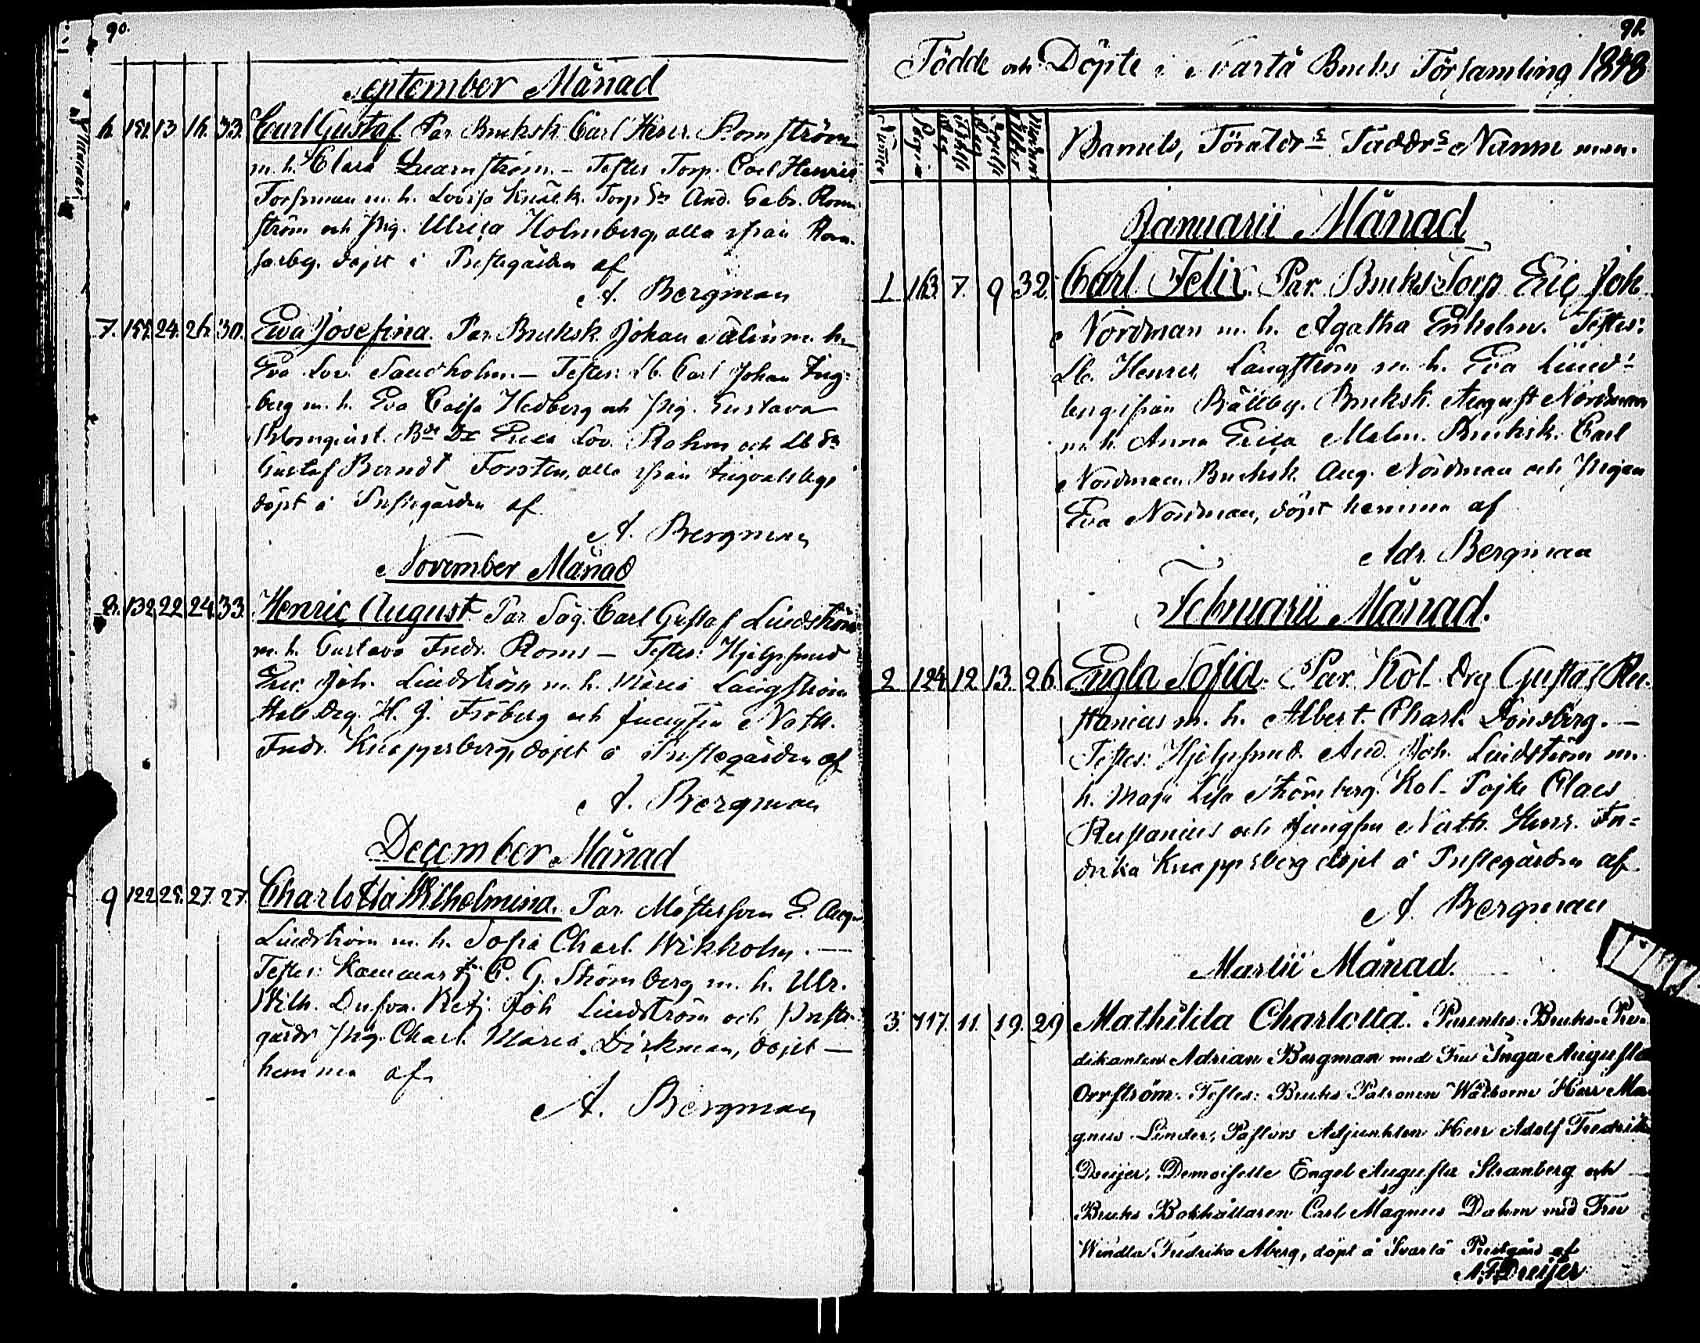 90.
September Månad
6. 152. 13. 16. 33. Carl Gustaf. Par. Bruksk. Carl Henr. Romström
m. h. Clara Qvarnström. – Testes Torp. Carl Henric
Forssman m. h. Lovisa And. Gabr. Rom-
ström och Pig. Ulrica Holmberg, alla ifrån
döpt i Prestegården af
A. Bergman
7. 24. 26. 30. Eva Josefina. Par. Bruksk. Johan m. h.
Eva Lov. Sandholm. – Testes: Lb. Carl Johan
berg m. h. Eva Caisa Hedberg och Pig. Gustava
Blomqvist. Lov. Rahm och Lb. Sn
Gustaf Berndt Forsten, alla ifrån
döpt å Prestegården af
A. Bergman
November Månad
8. 132. 22. 24. 33. Henric August. Par. Såg. Carl Gustaf Lindström
m. h. Gustava Fredr. Roms – Testes: Hjelpsmed
Eric Joh. Lindström m. h. Maria Långström
Drg. H. J. Fröberg och Jungfru Nath.
Fredr. Knappsberg, döpt å Prestegården af
A. Bergman
December Månad
9 122. 25. 27. 27. Charlotta Wilhelmina. Par. Mästersven E. Aug.
Lindström m. h. Sofia Charl. Wikholm. –
Testes: G. Strömberg m. h. Ulr.
Wilh. Dufva. Joh. Lindström och Preste-
gårds Pig. Charl. Maria Dirkman, döpt –
hemma af
A. Bergman
91.
Födde och Döpte i Svartå Bruks Församling 1848
Barnets, Föräldrs Faddrs Namn m.m.
Januarii Månad
1 163. 7. 9 32. Carl Felix. Par. Bruks Torp. Eric Joh.
Nordman m. h. Agatha Enholm. Testes:
Lb. Henric Långström m. h. Eva Lind-
berg ifrån Bällby. Bruksk. August Nordman
m. h. Anna Erica Malm. Bruksk. Carl
Nordman. Bruksk. Aug. Nordman och Pigan
Eva Nordman, döpt hemma af
Adr. Bergman
Februarii Månad.
2 124. 12. 13. 26. Engla Sofia. Par. Kol. Drg Gustaf Ru-
stanius m. h. Albert. Charl. Lönsberg. –
Testes: Hjelpsmed. And. Joh. Lindström m.
h. Maja Lisa Strömberg. Kol. Pojke Claes
Rustanius och Jungfru Nath. Henr. Fre-
drika Knappsberg döpt å Prestegården af
A. Bergman
Martii Månad.
3. 117. 11. 19. 29. Mathilda Charlotta. Parentes: Bruks-Pre-
dikanten Adrian Bergman med Fru Inga Augusta
Orrström. Testes: Bruks Patronen Wälborne Herr Ma-
gnus Linder, Pastors Adjunkten Herr Adolf Fredrik
Dreijer, Demoiselle Engel Augusta Stranberg och
Bruks Bokhållaren Carl Magnus Dahm med Fru
Wendla Fredrika Åberg, döpt å Svartå Prestgård af
A. F. Dreijer